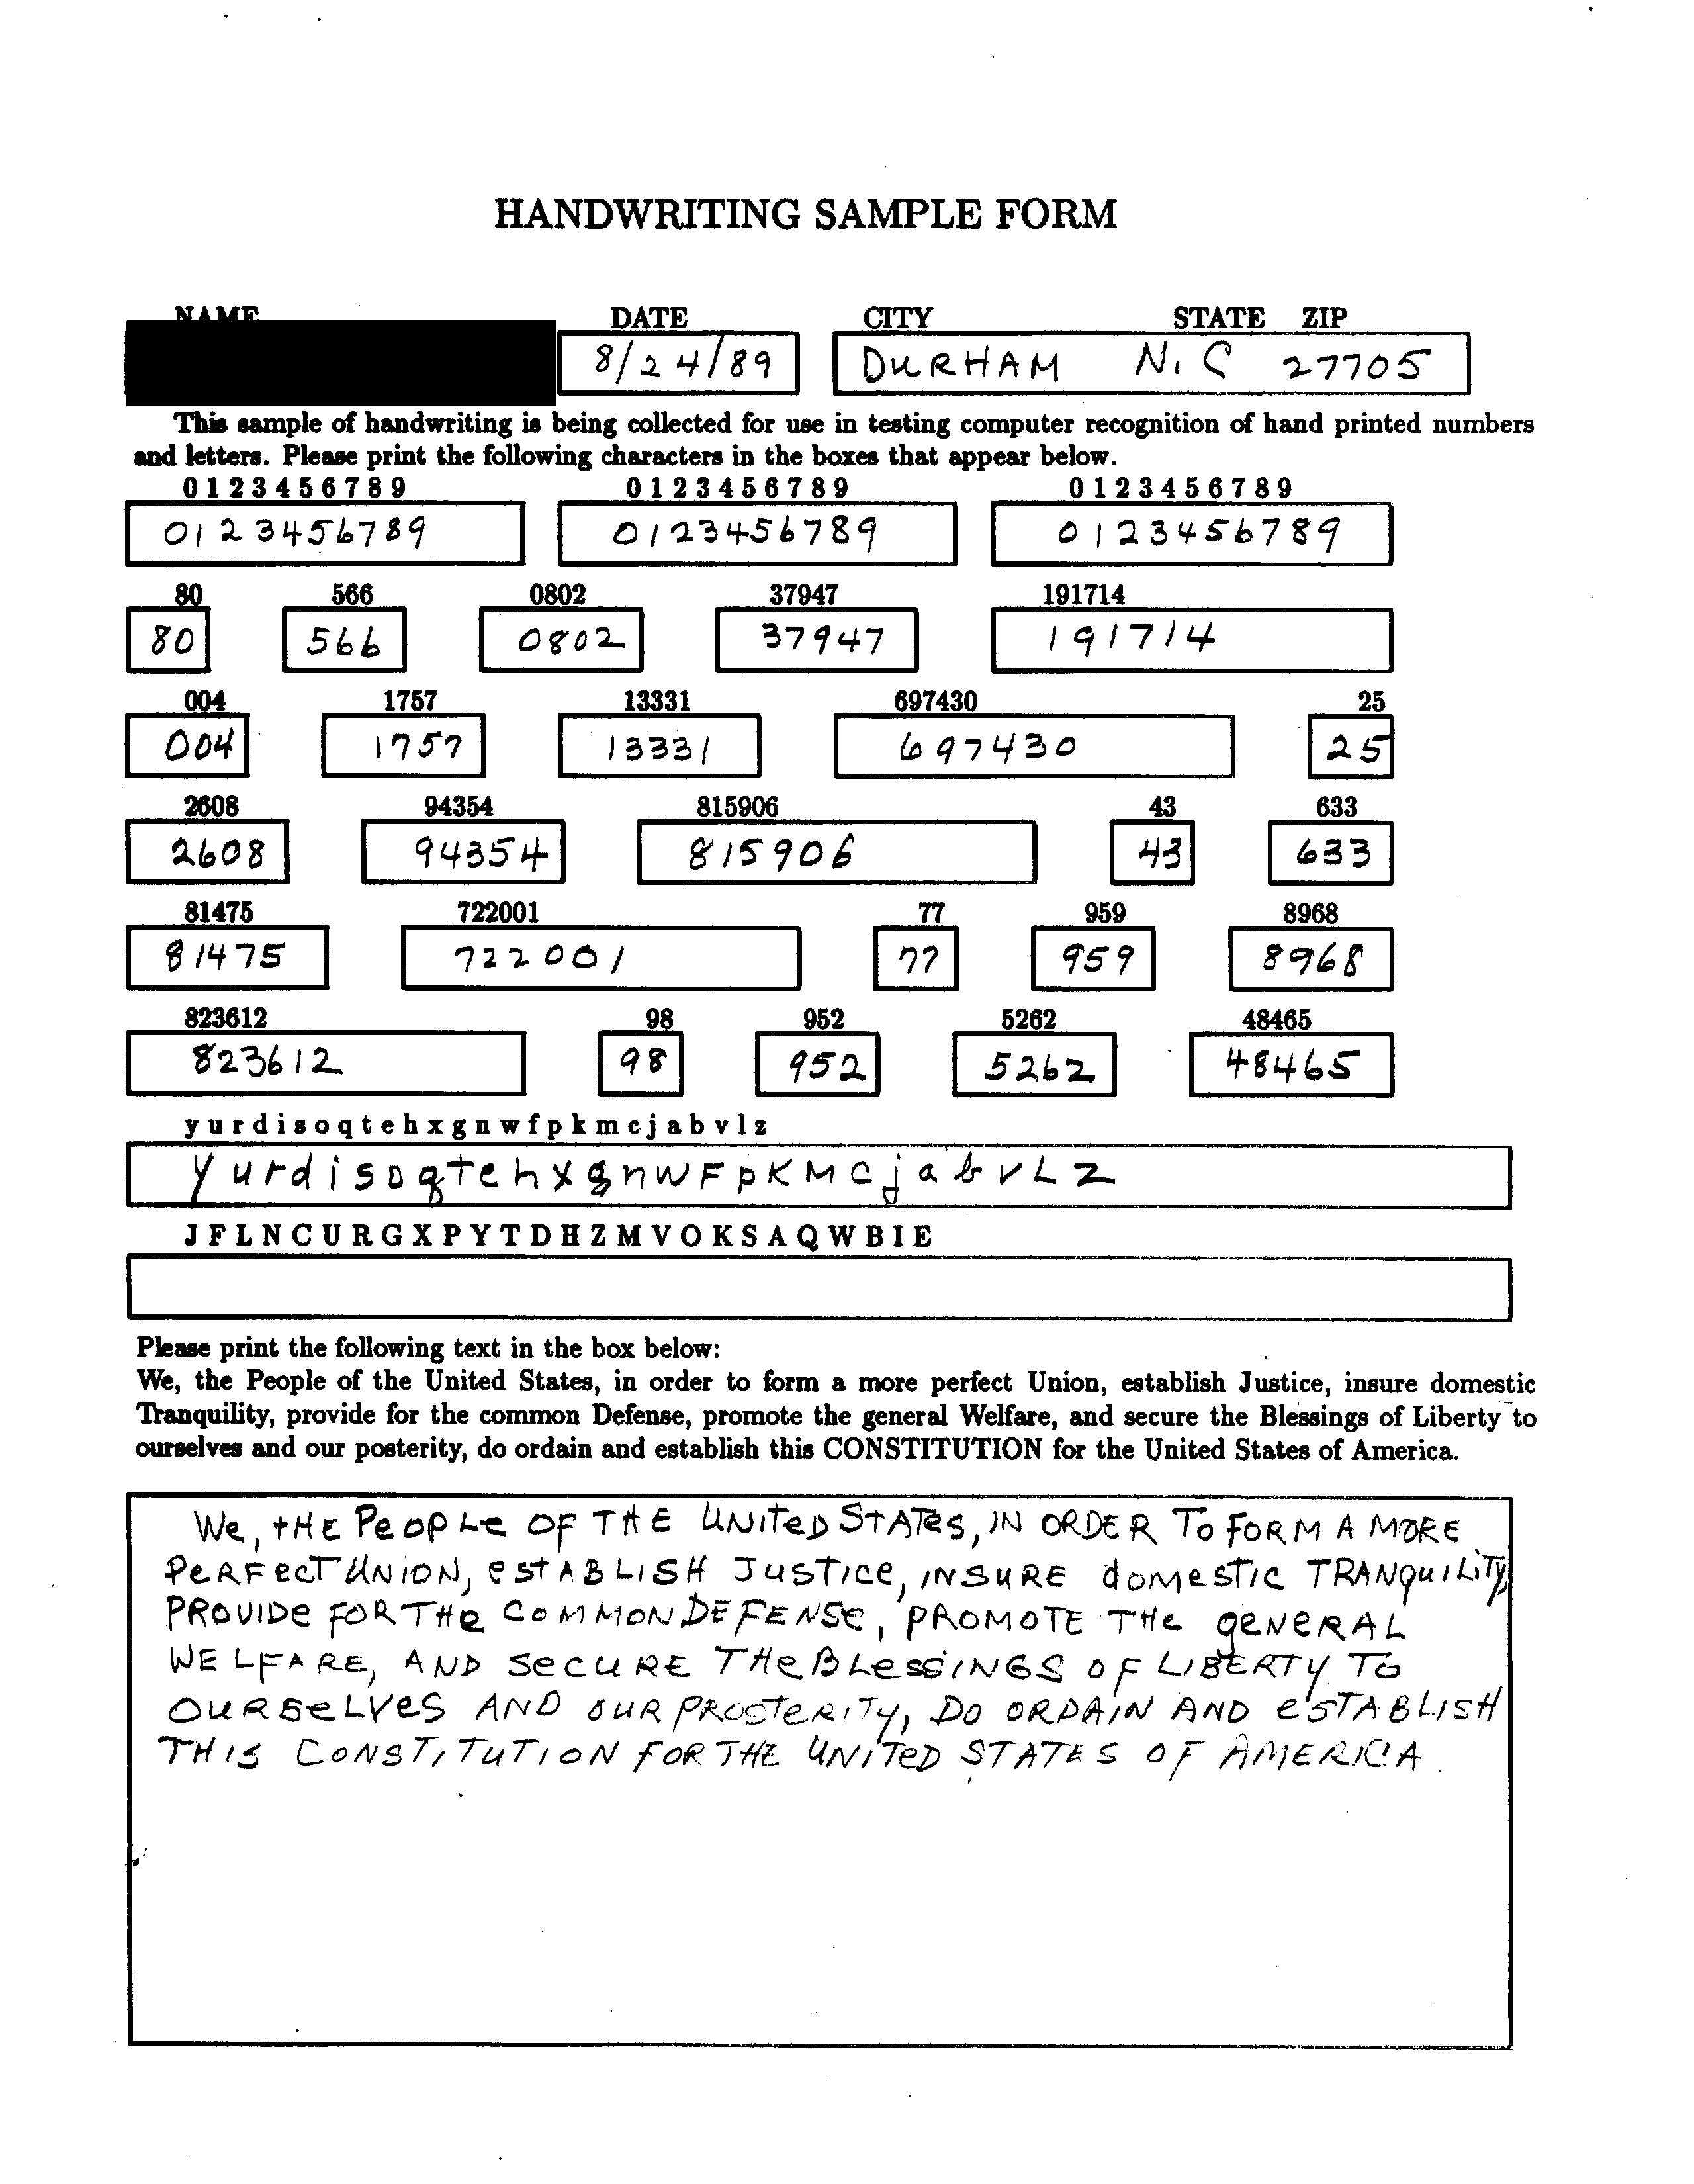 HANDWRITING SAMPLE FORM
NAME DATE CITY STATE ZIP
8/24/89 DURHAM N.C 27705
This sample of handwriting is being collected for use in testing computer recognition of hand printed numbers
and letters. Please print the following characters in the boxes that appear below.
0 1 2 3 4 5 6 7 8 9 0 1 2 3 4 5 6 7 8 9 0 1 2 3 4 5 6 7 8 9
0123456789 0123456789 0123456789
80 566 0802 37947 191714
80 566 0802 37947 191714
004 1757 13331 697430 25
004 1757 13331 697430 25
2608 94354 815906 43 633
2608 94354 815906 43 633
81475 722001 77 959 8968
81475 722001 77 959 8968
823612 98 952 5262 48465
823612 98 952 5262 48465
y u r d i s o q t e h x g n w f p k m c j a b v l z
y u r d i s o q t e h x g n W F p K M C j a b v L z
J F L N C U R G X P Y T D H Z M V O K S A Q W B I E
Please print the following text in the box below:
We, the People of the United States, in order to form a more perfect Union, establish Justice, insure domestic
Tranquility, provide for the common Defense, promote the general Welfare, and secure the Blessings of Liberty to
ourselves and our posterity, do ordain and establish this CONSTITUTION for the United States of America.
We, tHE PeOpLe OF THE UNiTeD STATes, IN ORDER To FORM A MORE
PeRFecT UNION, estABLISH JUSTICe, INSURE doMesTIC TRANquILITy,
PROVIDe FOR THe COMMON DEFENSe, PROMOTE THe geNeRAL
WELFARE, AND SecURE THe BLessINGS OF LIBERTY TO
OURSeLVeS AND OUR PROSTeRITY, DO ORDAIN AND eSTABLISH
THIS CONSTITUTION FOR THE UNITeD STATES OF AMERICA